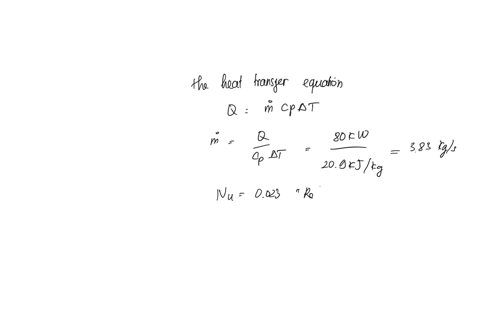 the heat transfer equation
Q = ṁ Cp ΔT
ṁ = Q / Cp ΔT = 80 kW / 20.9 kJ/kg = 3.83 kg/s
Nu = 0.023 " Re